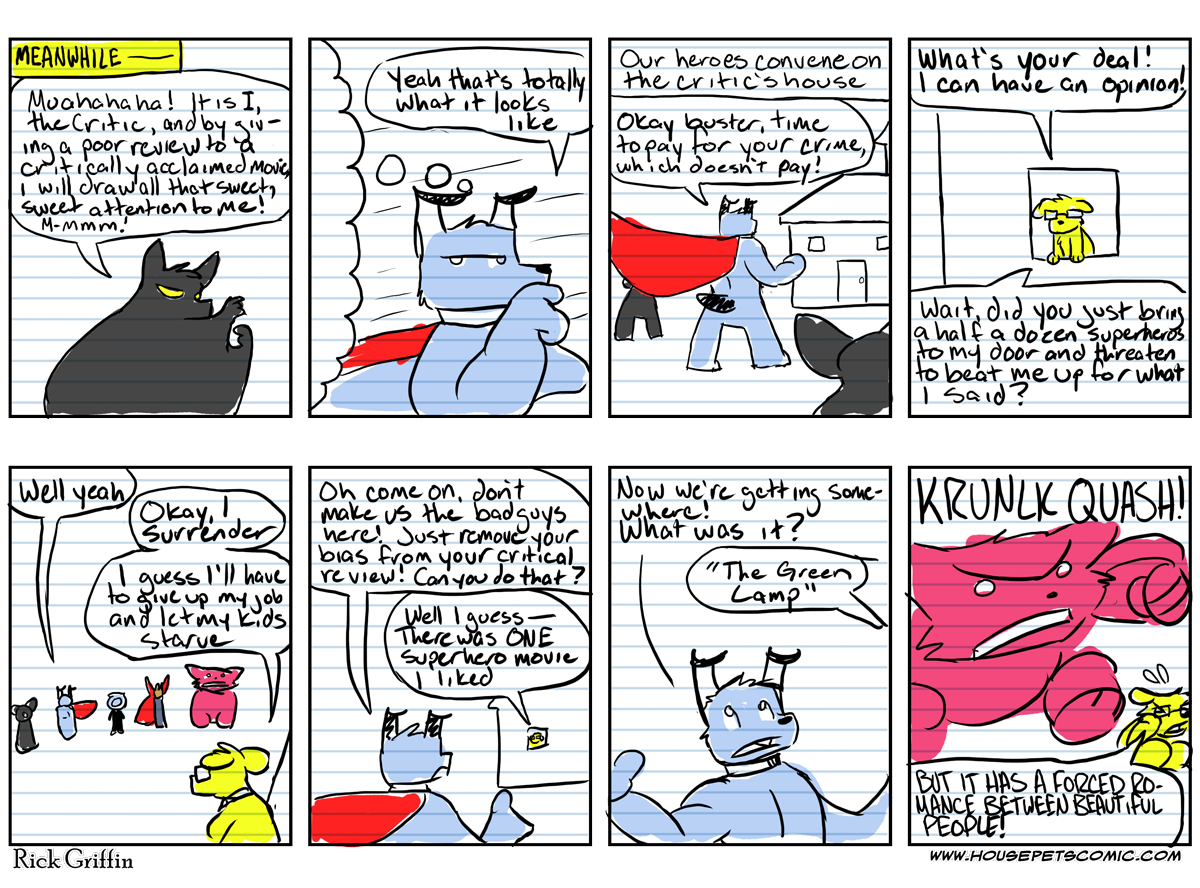 MEANWHILE —
Muahahaha! It is I,
the Critic, and by giv-
ing a poor review to a
critically acclaimed movie,
I will draw all that sweet,
sweet attention to me!
M-mmm!
Yeah that's totally
what it looks
like
Our heroes convene on
the critic's house
Okay buster, time
to pay for your crime,
which doesn't pay!
What's your deal!
I can have an opinion!
Wait, did you just bring
a half a dozen superheros
to my door and threaten
to beat me up for what
I said?
Well yeah
Okay, I
surrender
I guess I'll have
to give up my job
and let my kids
starve
Oh come on, don't
make us the bad guys
here! Just remove your
bias from your critical
review! Can you do that?
Well I guess—
There was ONE
superhero movie
I liked
Now we're getting some-
where!
What was it?
"The Green
Lamp"
KRUNLK QUASH!
BUT IT HAS A FORCED RO-
MANCE BETWEEN BEAUTIFUL
PEOPLE!
Rick Griffin
WWW.HOUSEPETSCOMIC.COM